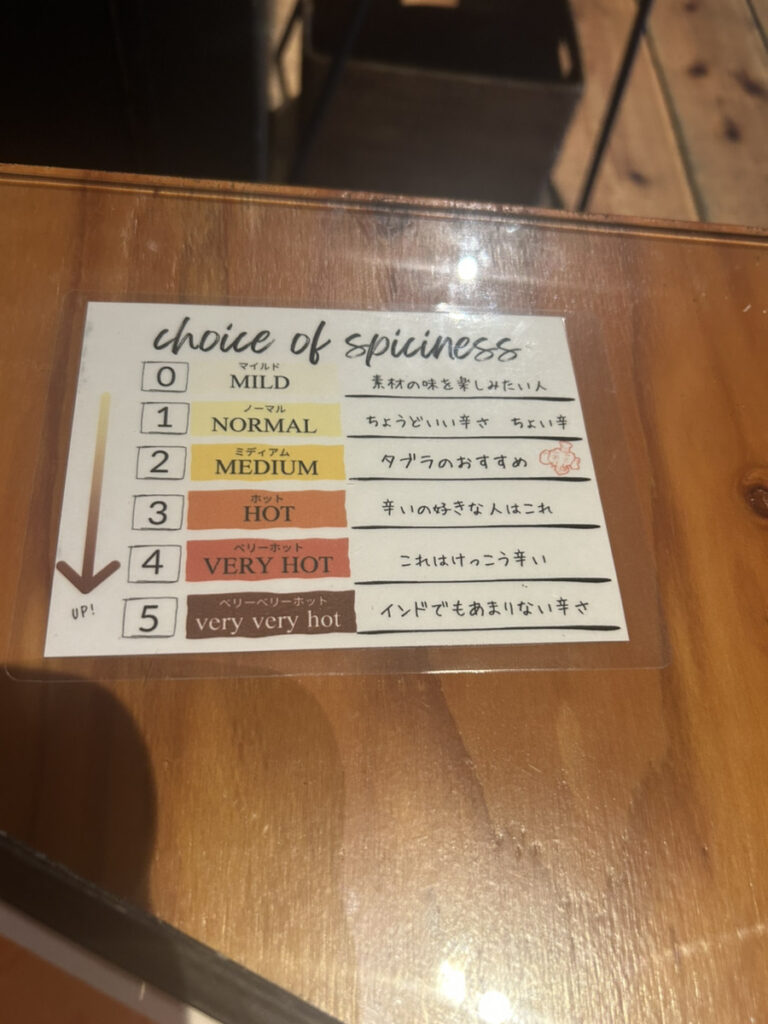 choice of spiciness
0 マイルド MILD 素材の味を楽しみたい人
1 ノーマル NORMAL ちょうどいい辛さ ちょい辛
2 ミディアム MEDIUM タブラのおすすめ
3 ホット HOT 辛いの好きな人はこれ
4 ベリーホット VERY HOT これはけっこう辛い
5 ベリーベリーホット very very hot インドでもあまりない辛さ
UP!